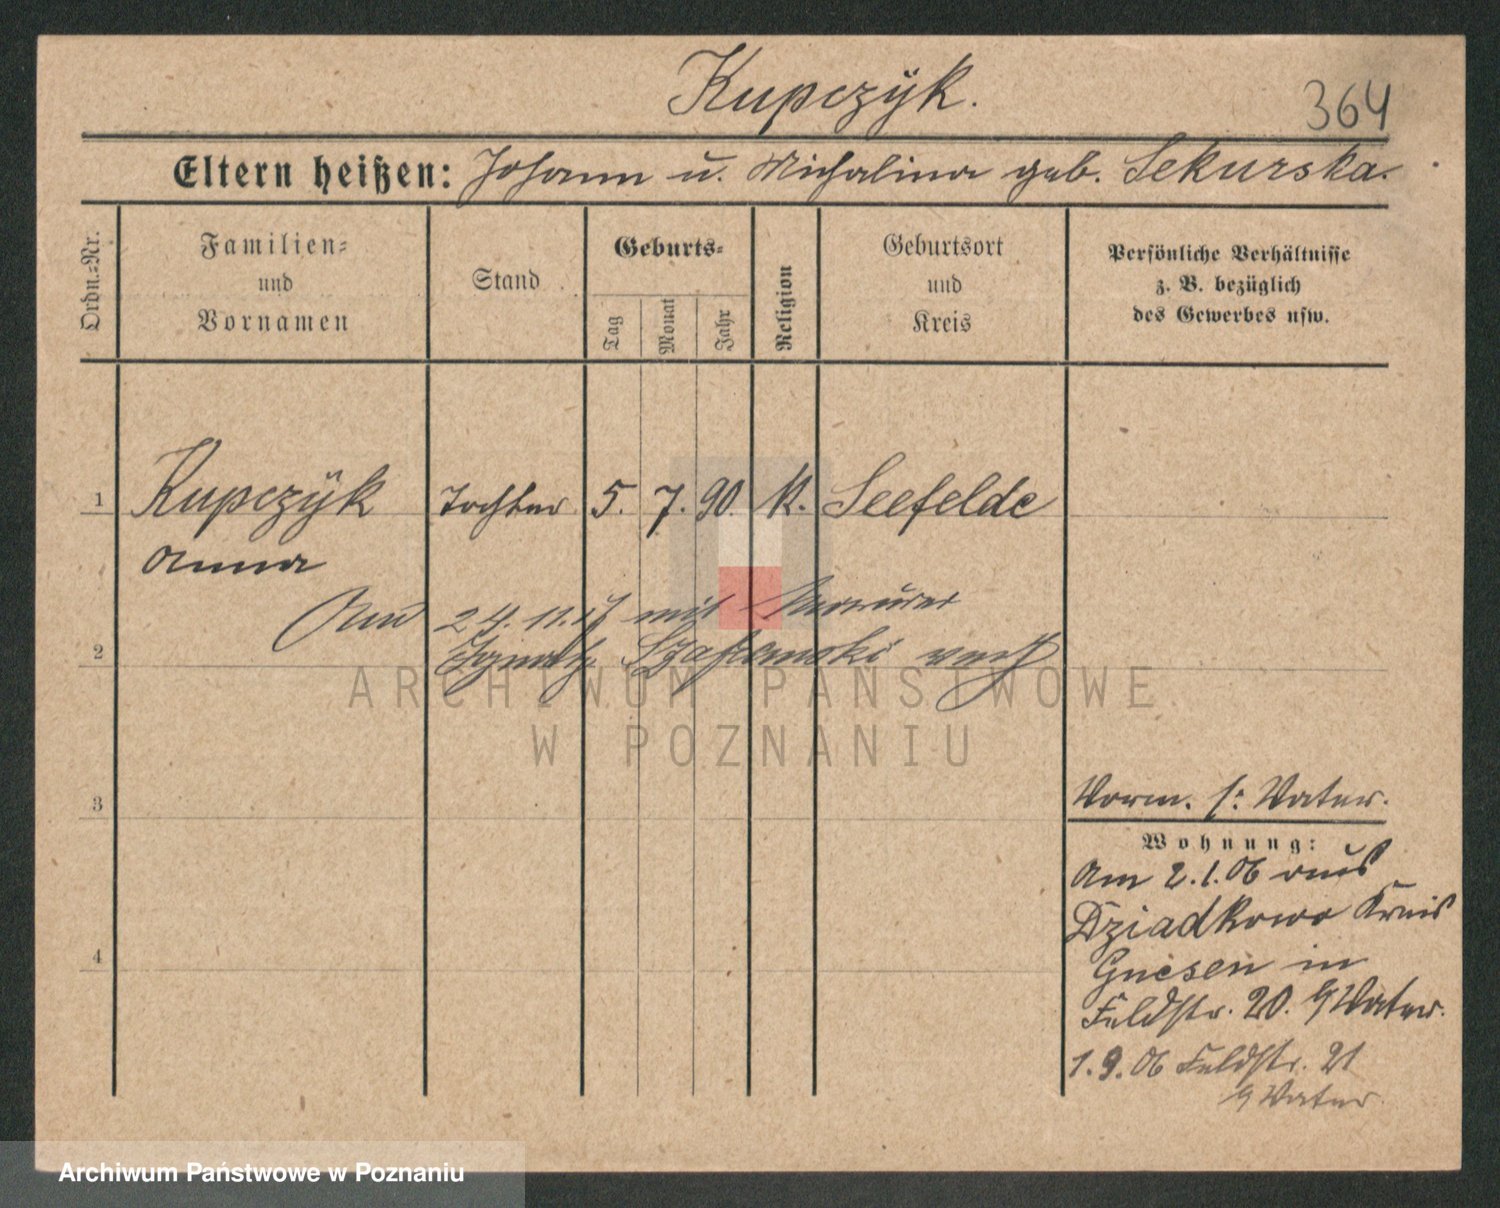 Kupczÿk.
364
Eltern heißen: Johann u. Michalina geb. Sekurska.
Ordn.=Nr.
Familien=
und
Vornamen
Stand
Geburts=
Tag
Monat
Jahr
Religion
Geburtsort
und
Kreis
Persönliche Verhältnisse
z. B. bezüglich
des Gewerbes usw.
1 Kupczÿk Tochter 5. 7. 90. K. Seefelde
Anna
Am 24.11.17 mit Maurer
2 Ignatz verh
ARCHIWUM PAŃSTWOWE
W POZNANIU
3
Vorm. s: Vater.
Wohnung:
Am 2.1.06 aus
Dziadkowo Kreis
4
Gnesen in
Feldstr. 20. b/Vater.
1.9.06 Feldstr. 21
b/Vater
Archiwum Państwowe w Poznaniu